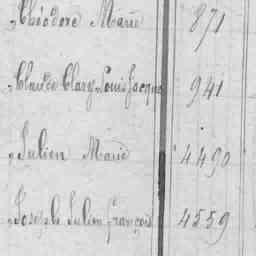 „ Théodore Marie 871
„ Claude Clary Louis Jacques 941
„ Julien Marie 4490
„ Joseph Julien françois 4559